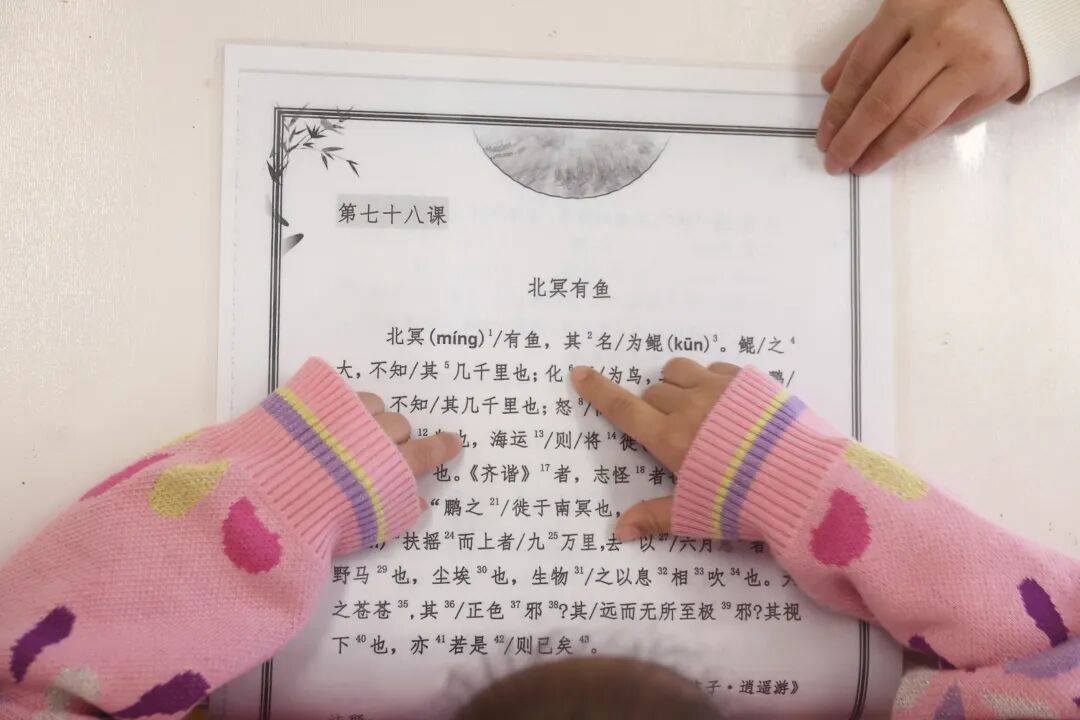 第七十八课
北冥有鱼
北冥(míng)¹/有鱼,其²名/为鲲(kūn)³。鲲/之⁴
大,不知/其⁵几千里也;化⁶ /为鸟, 鹏/
不知/其几千里也;怒⁸/
¹² 也,海运¹³/则/将¹⁴徙
也。《齐谐》¹⁷者,志怪¹⁸者
“鹏之²¹/徙于南冥也,
扶摇²⁴而上者/九²⁵万里,去 以²⁷/六月息 者
野马²⁹也,尘埃³⁰也,生物³¹/之以息³²相³³吹³⁴也。天
之苍苍³⁵,其³⁶/正色³⁷邪³⁸?其/远而无所至极³⁹邪?其视
下⁴⁰也,亦⁴¹若是⁴²/则已矣⁴³。
子·逍遥游》